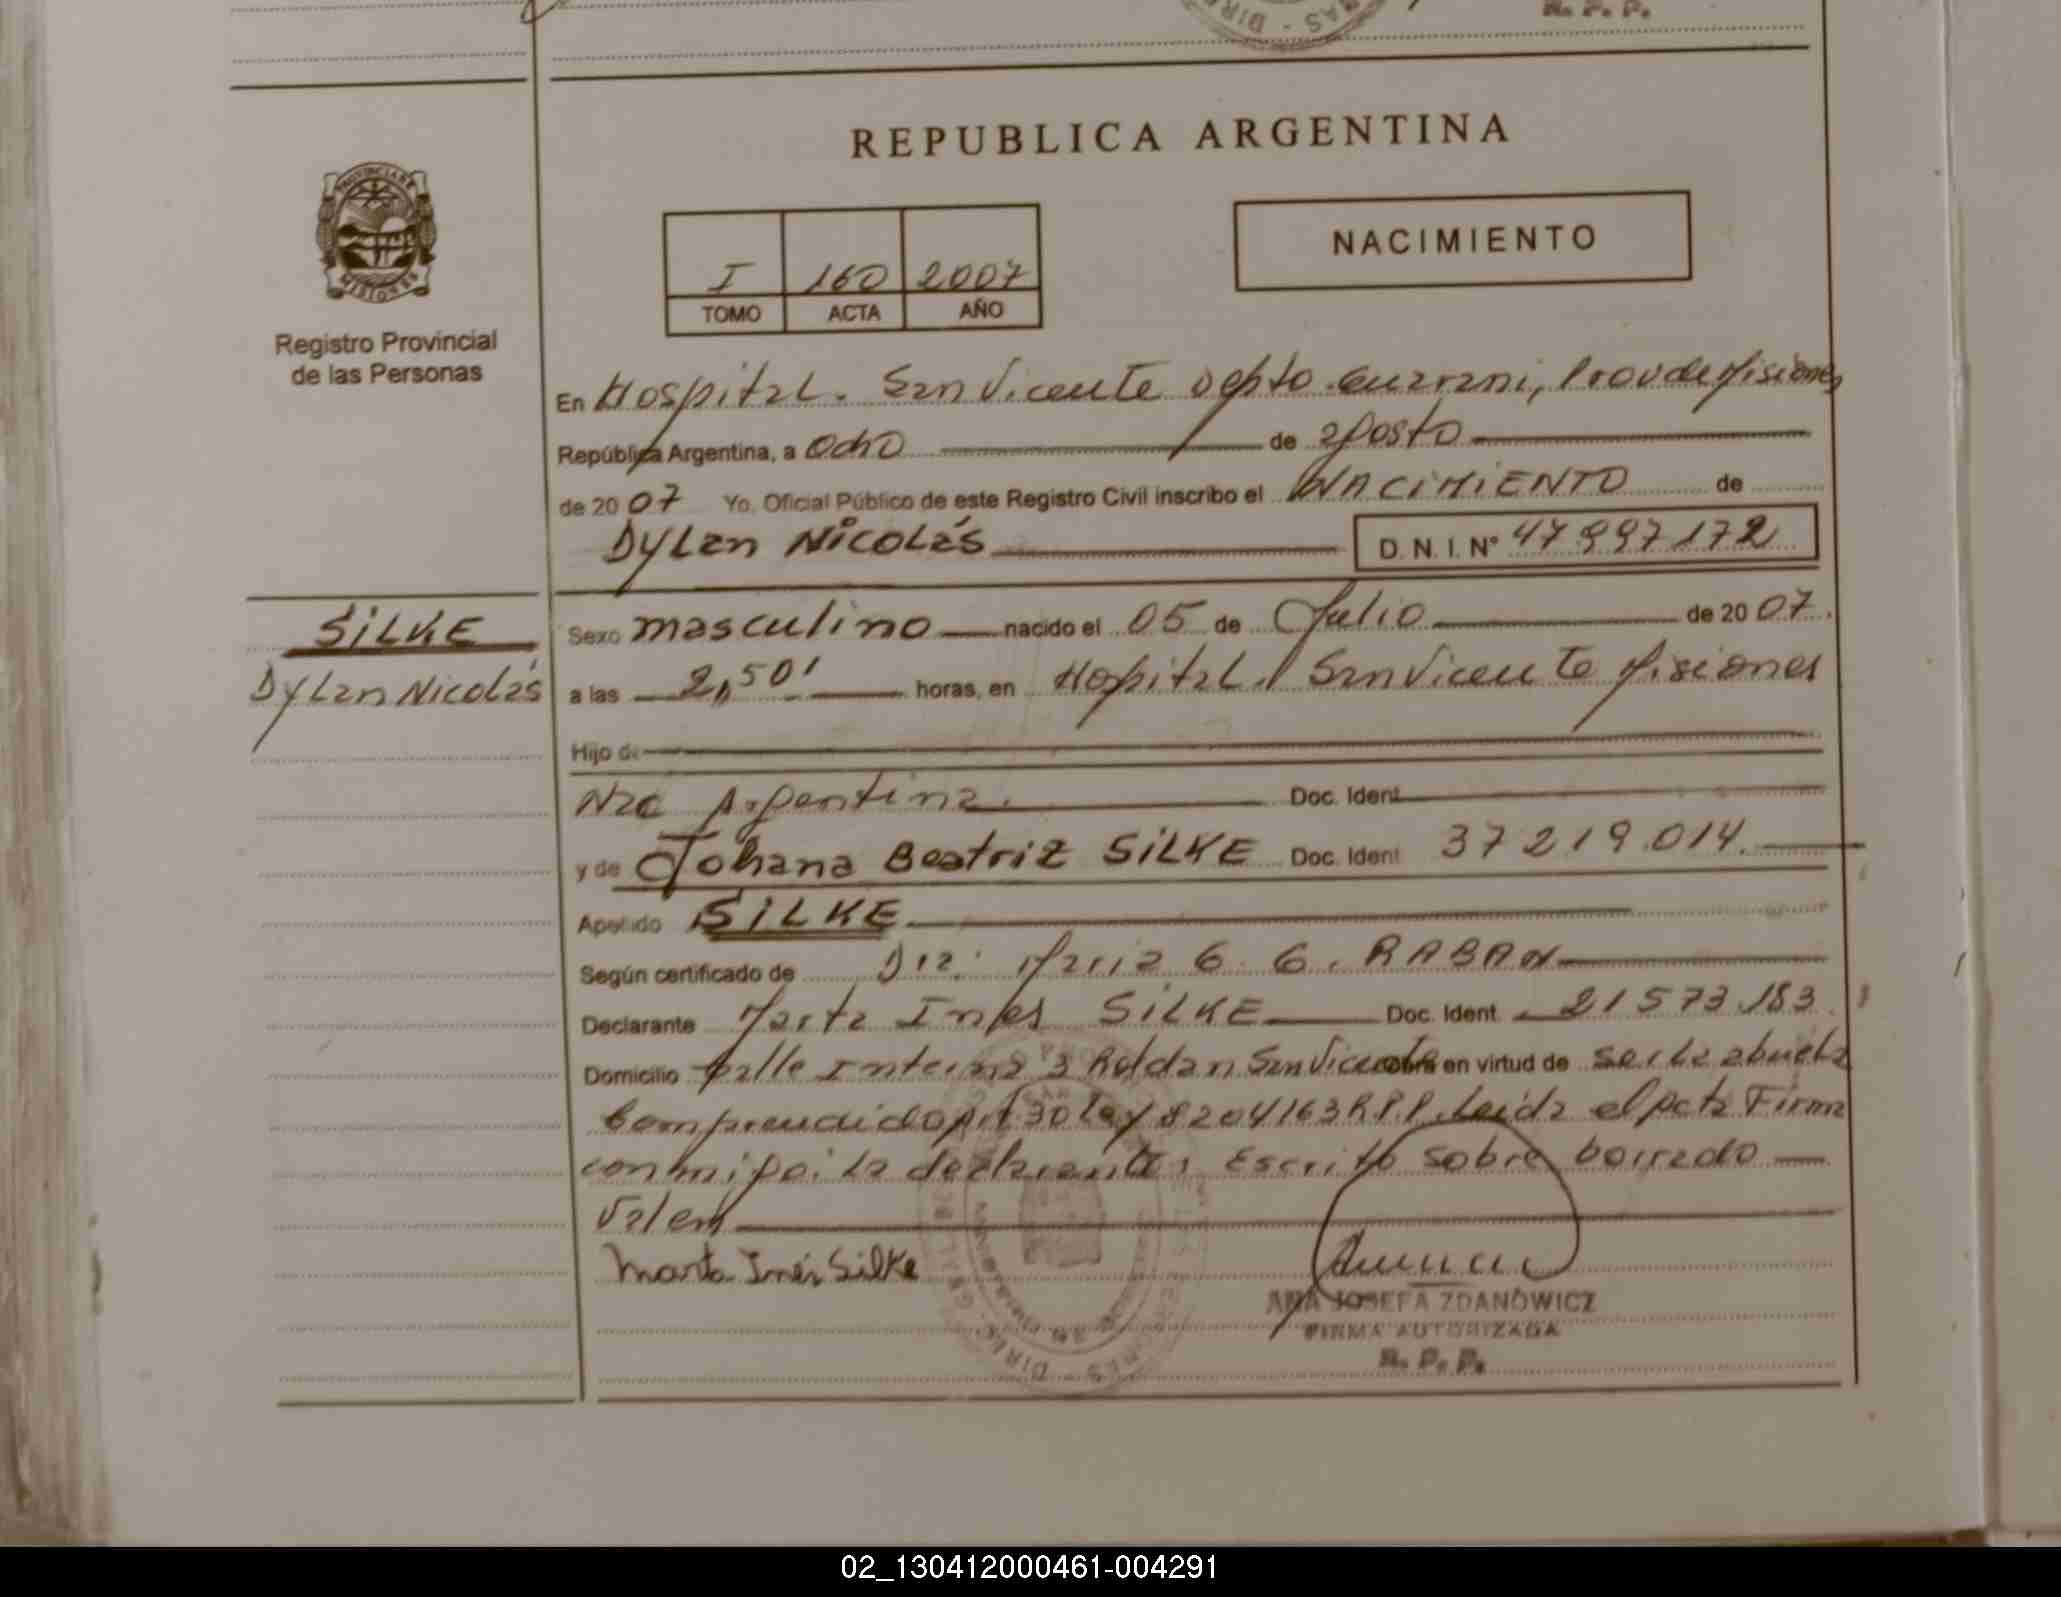 R. P. P.
REPUBLICA ARGENTINA
PROVINCIA DE
MISIONES
Registro Provincial
de las Personas
I 160 2007
TOMO ACTA AÑO
NACIMIENTO
En Hospital. San Vicente Depto. Guarani, Prov de Misiones
República Argentina, a Ocho de agosto
de 2007 Yo, Oficial Público de este Registro Civil inscribo el NACIMIENTO de
Dylan Nicolás D. N. I. Nº 47997172
SILKE
Dylan Nicolás
Sexo masculino nacido el 05 de Julio de 2007.
a las 2,50' horas, en Hospital. San Vicente Misiones
Hijo de
Nac Argentina. Doc. Ident
y de Johana Beatriz SILKE Doc. Ident 37219.014.
Apellido SILKE
Según certificado de Dra. Maria G. G. RABAN
Declarante Marta Ines SILKE Doc. Ident 21573.183
Domicilio Calle Interna a Roldan San Vicente en virtud de ser la abuela
Comprendido art 30 Ley 8204/63 R.P.P. Leida el acta Firma
conmigo la declarante. Escrito sobre borrado
Valen
Marta Inés Silke
ANA JOSEFA ZDANOWICZ
FIRMA AUTORIZADA
R. P. P.
02_130412000461-004291